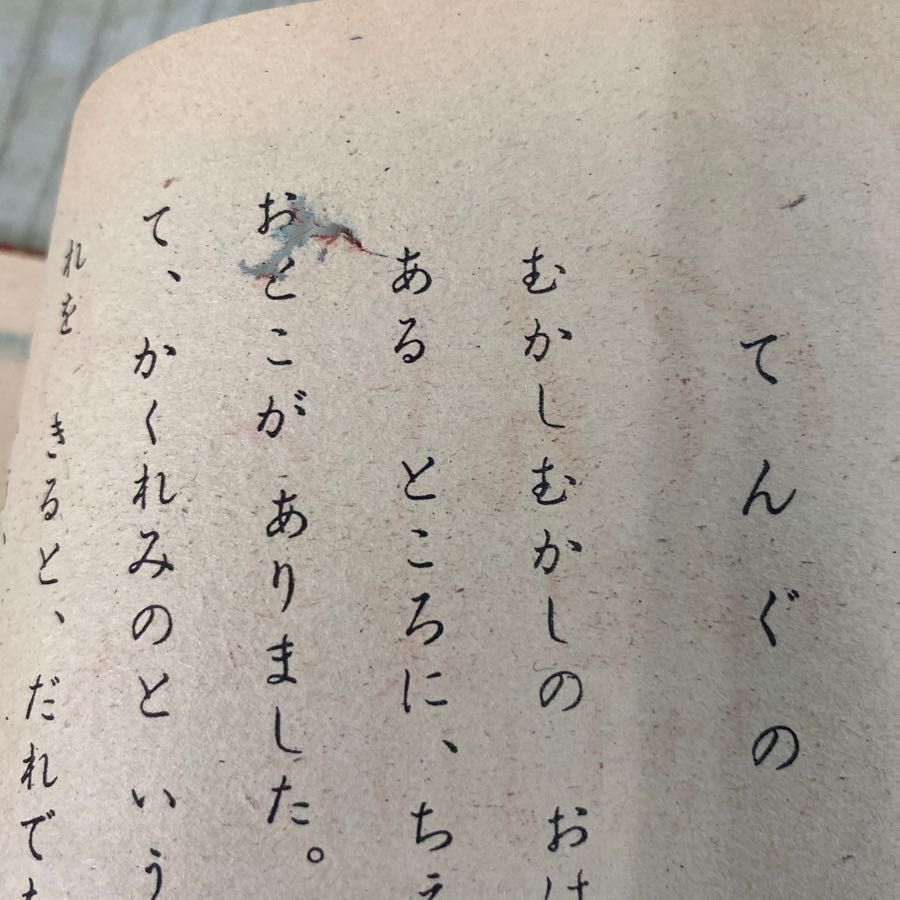 てんぐの
むかしむかしの おは
ある ところに、ちえ
おとこが ありました。
て、かくれみのと いう
れを きると、だれでも